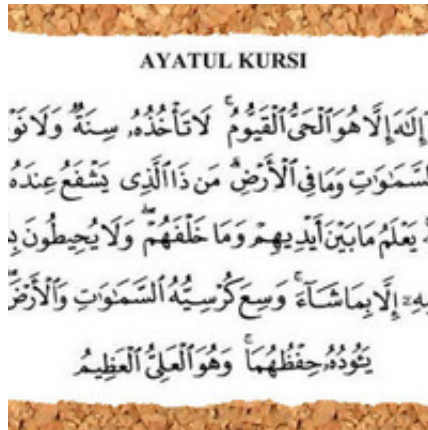 AYATUL KURSI
إِلَٰهَ إِلَّا هُوَ ٱلْحَىُّ ٱلْقَيُّومُ ۚ لَا تَأْخُذُهُۥ سِنَةٌ وَلَا نَوْ
ٱلسَّمَٰوَٰتِ وَمَا فِى ٱلْأَرْضِ ۗ مَن ذَا ٱلَّذِى يَشْفَعُ عِندَهُ
يَعْلَمُ مَا بَيْنَ أَيْدِيهِمْ وَمَا خَلْفَهُمْ ۖ وَلَا يُحِيطُونَ بِ
إِلَّا بِمَا شَآءَ ۚ وَسِعَ كُرْسِيُّهُ ٱلسَّمَٰوَٰتِ وَٱلْأَرْضَ
يَـُٔودُهُۥ حِفْظُهُمَا ۚ وَهُوَ ٱلْعَلِىُّ ٱلْعَظِيمُ